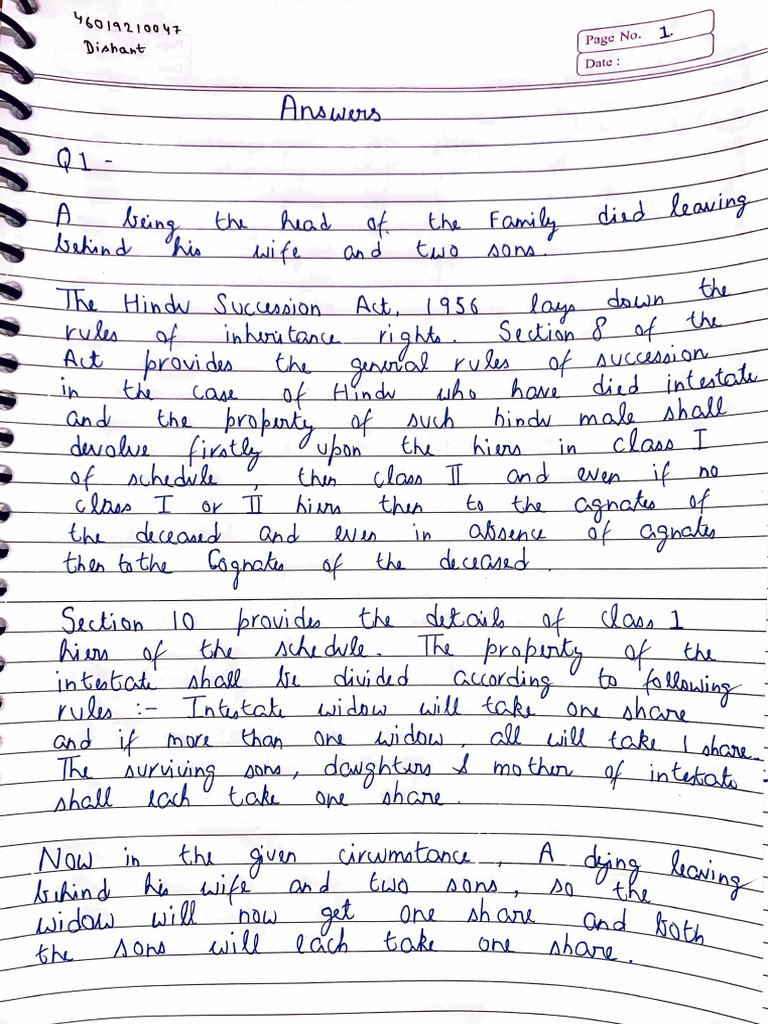 46019210047
Dishant
Page No. 1.
Date :
Answers
Q1 -
A being the head of the Family died leaving
behind his wife and two sons.
The Hindu Succession Act, 1956 lays down the
rules of inheritance rights. Section 8 of the
Act provides the general rules of succession
in the case of Hindu who have died intestate
and the property of such hindu male shall
devolve firstly upon the hiers in class I
of schedule, then class II and even if no
class I or II hiers then to the agnates of
the deceased and even in absence of agnates
then to the Cognates of the deceased.
Section 10 provides the details of class 1
hiers of the schedule. The property of the
intestate shall be divided according to following
rules :- Intestate widow will take one share
and if more than one widow, all will take 1 share.
The surviving sons, daughters & mother of intestate
shall each take one share.
Now in the given circumstance, A dying leaving
behind his wife and two sons, so the
widow will now get one share and both
the sons will each take one share.